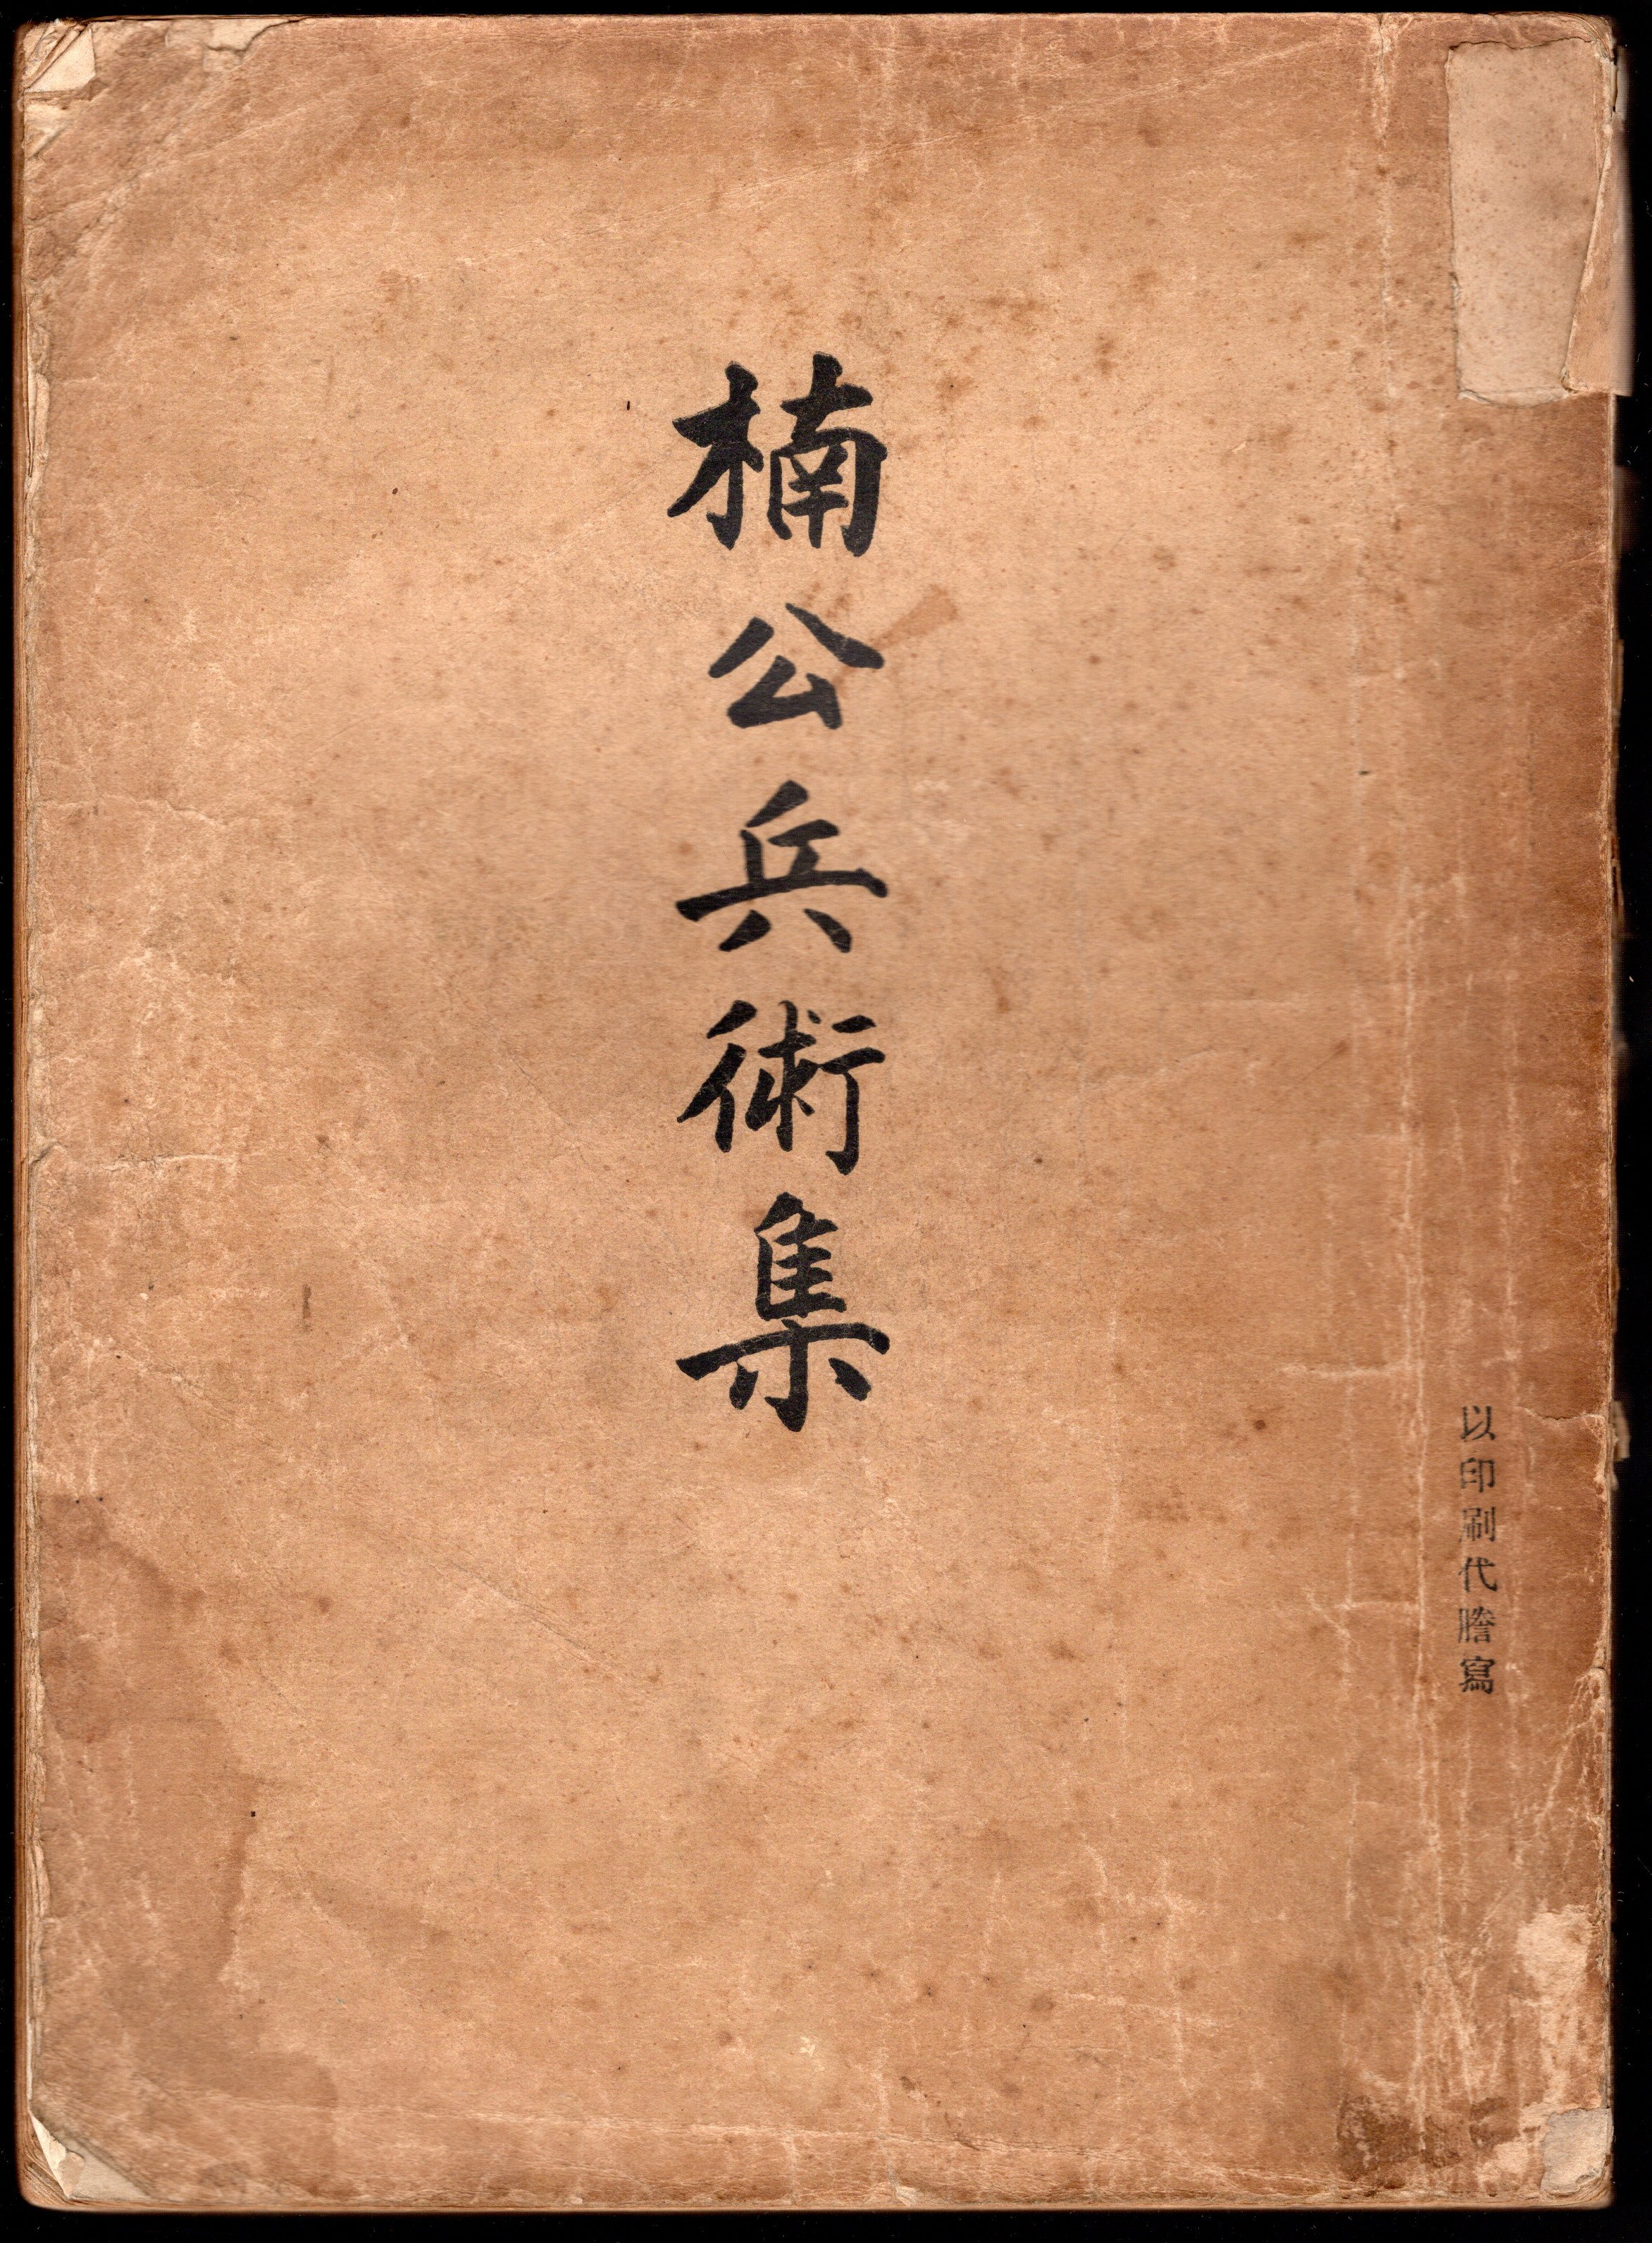 以印刷代謄寫
楠公兵術集